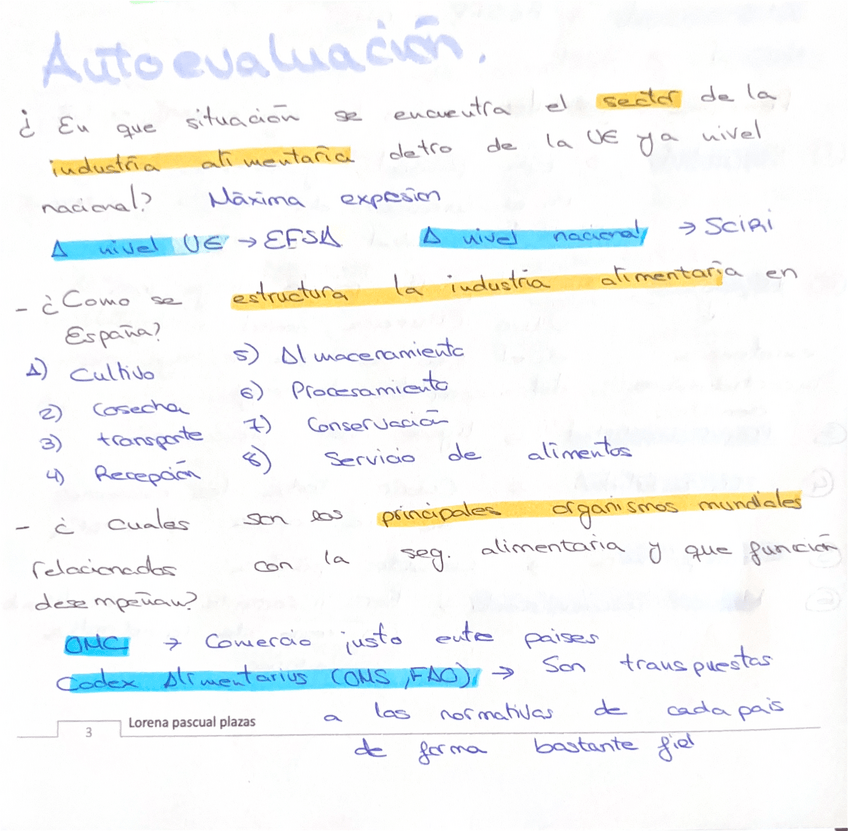 Autoevaluación.
¿ En que situación se encuentra el sector de la
industria alimentaria detro de la UE y a nivel
nacional? Máxima expesion
A nivel UE → EFSA A nivel nacional → SCIRI
- ¿Como se estructura la industria alimentaria en
España?
1) Cultivo
2) Cosecha
3) transporte
4) Recepción
5) Almaceramiento
6) Procesamiento
7) Conservación
8) Servicio de alimentos
- ¿ Cuales son los principales organismos mundiales
relacionados con la seg. alimentaria y que función
desempeñan?
OMC → Comercio justo ente paises
Codex Alimentarius (OMS, FAO) → Son transpuestas
a las normativas de cada pais
de forma bastante fiel
3 Lorena pascual plazas